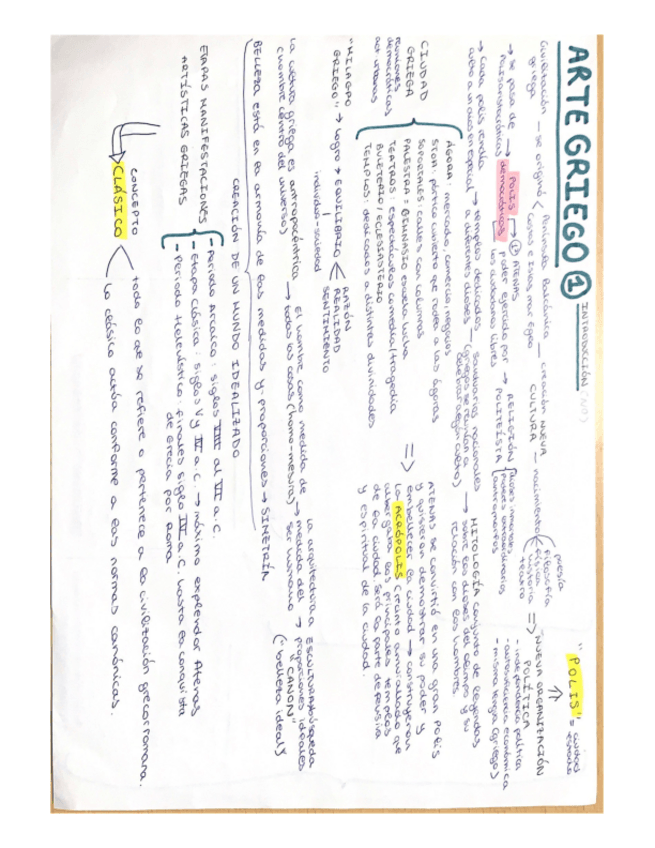 ARTE GRIEGO ① INTRODUCCIÓN
"POLIS" = ciudad estado
Civilización griega — se originó < Península Balcánica
Costas e islas mar Egeo
creación NUEVA CULTURA — nacimiento
poesía
filosofía
física
historia
teatro
=> "NUEVA ORGANIZACIÓN POLÍTICA
- independencia política
- autosuficiencia económica
- misma lengua (griego)
→ se pasa de → POLIS
democráticas
→ ATENAS
poder ejercido por los ciudadanos libres
→ RELIGIÓN POLITEÍSTA
dioses inmortales
poderes extraordinarios
antropomorfos
→ cada polis rendía culto a un dios en especial → templos dedicados a diferentes dioses
santuarios nacionales
(griegos se reunían a celebrar algún culto)
→ MITOLOGÍA conjunto de leyendas sobre los dioses del olimpo y su relación con los hombres
CIUDAD GRIEGA
reuniones democráticas
act urbanas
ÁGORA: mercado, comercio, negocios
STOA: pórtico cubierto que rodea a las ágoras
SOPORTALES: calles con columnas
PALESTRA = GIMNASIO escuela lucha
TEATROS: espectáculos comedia/tragedia
BULETERIO / ECLESIASTERIO
TEMPLOS: dedicados a distintas divinidades
=> ATENAS se convirtió en una gran polis
y quisieron demostrar su poder y
embellecer la ciudad → construyeron
la ACRÓPOLIS (recinto amurallado que
albergaba los principales templos
de la ciudad. Será la parte defensiva
y espiritual de la ciudad.
"MILAGRO GRIEGO" → logro → EQUILIBRIO < RAZÓN
REALIDAD
SENTIMIENTO
individuo-sociedad
La cultura griega es antropocéntrica
(hombre centro del universo)
→ El hombre como medida de todas las cosas (homo-mesura)
→ la arquitectura medida del ser humano
→ ESCULTURA búsqueda proporciones ideales
"CANON"
("belleza ideal")
CREACIÓN DE UN MUNDO IDEALIZADO
BELLEZA está en la armonía de las medidas y proporciones → SIMETRÍA
ETAPAS MANIFESTACIONES ARTÍSTICAS GRIEGAS
- Periodo Arcaico: siglos VIII al VI a.C.
- Etapa clásica: siglos V y IV a.C. → máximo esplendor Atenas
- Periodo Helenístico: finales siglo IV a.C. hasta la conquista de Grecia por Roma
CONCEPTO CLÁSICO
todo lo que se refiere o pertenece a la civilización grecorromana.
lo clásico actúa conforme a las normas canónicas.